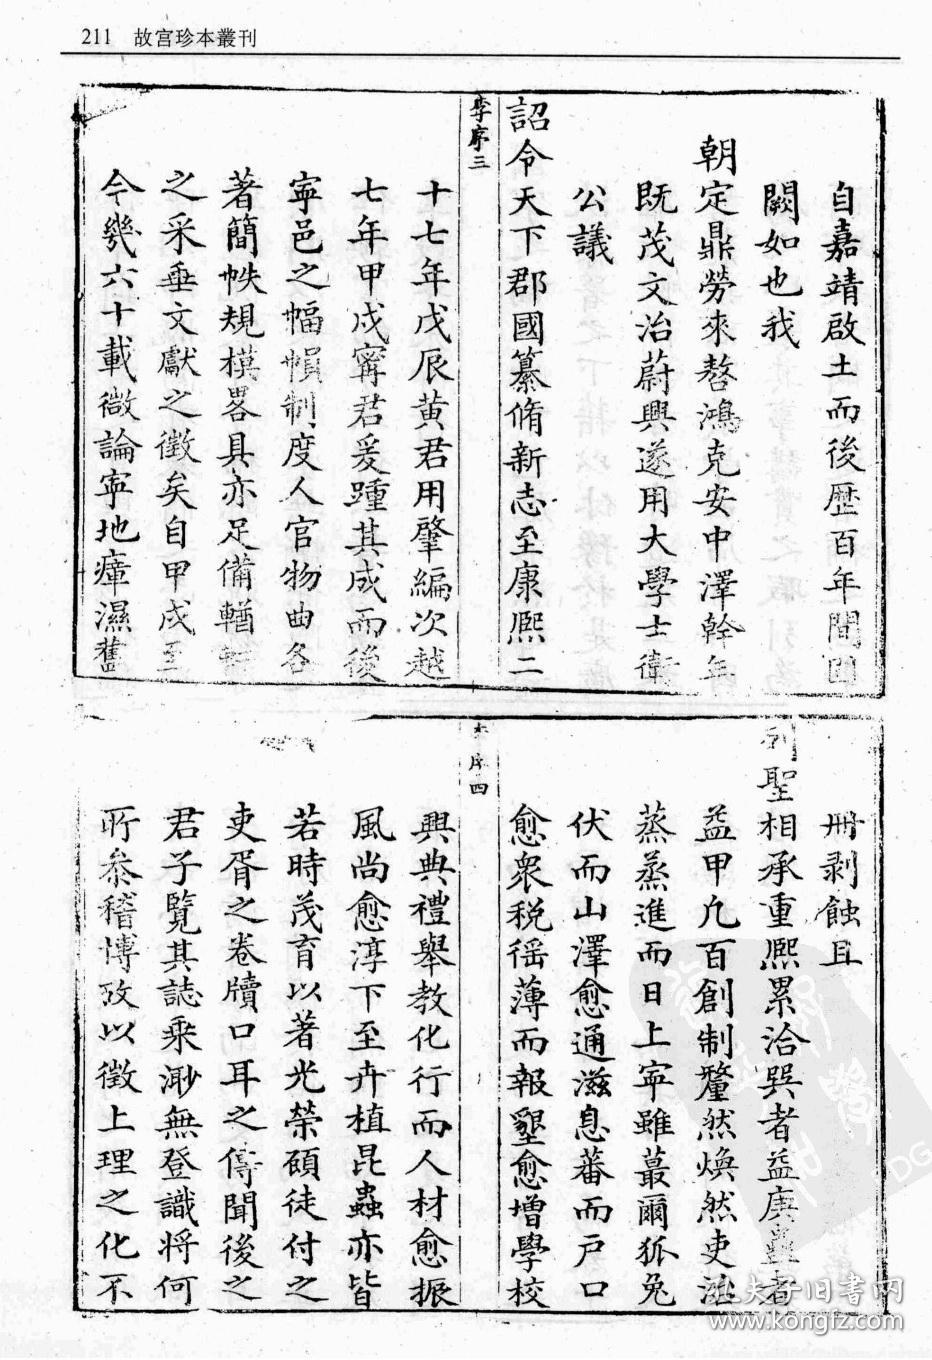 211 故宫珍本叢刊
自嘉靖啟土而後歷百年間
闕如也我
朝定鼎勞來嗸鴻克安中澤幹年
既茂文治蔚興遂用大學士衛
公議
詔令天下郡國纂脩新志至康熙二
李序三
十七年戊辰黄君用肇編次越
七年甲戍寗君爰踵其成而後
寜邑之幅㡓制度人官物曲各
著簡帙規模畧具亦足備輶軒
之采垂文獻之徵矣自甲戍至
今幾六十載微論寜地瘴濕舊
冊剥蝕且
列聖相承重熙累洽巽者益庚蠱者
益甲凡百創制釐然煥然吏治
蒸蒸進而日上寜雖蕞爾狐兔
伏而山澤愈通滋息蕃而戸口
愈衆税徭薄而報墾愈增學校
序四
興典禮舉教化行而人材愈振
風尚愈淳下至卉植昆蟲亦皆
若時茂育以著光榮碩徒付之
吏胥之卷牘口耳之傳聞後之
君子覽其誌乘渺無登識將何
所叅稽博攷以徵上理之化不
孔夫子旧书网
www.kongfz.com